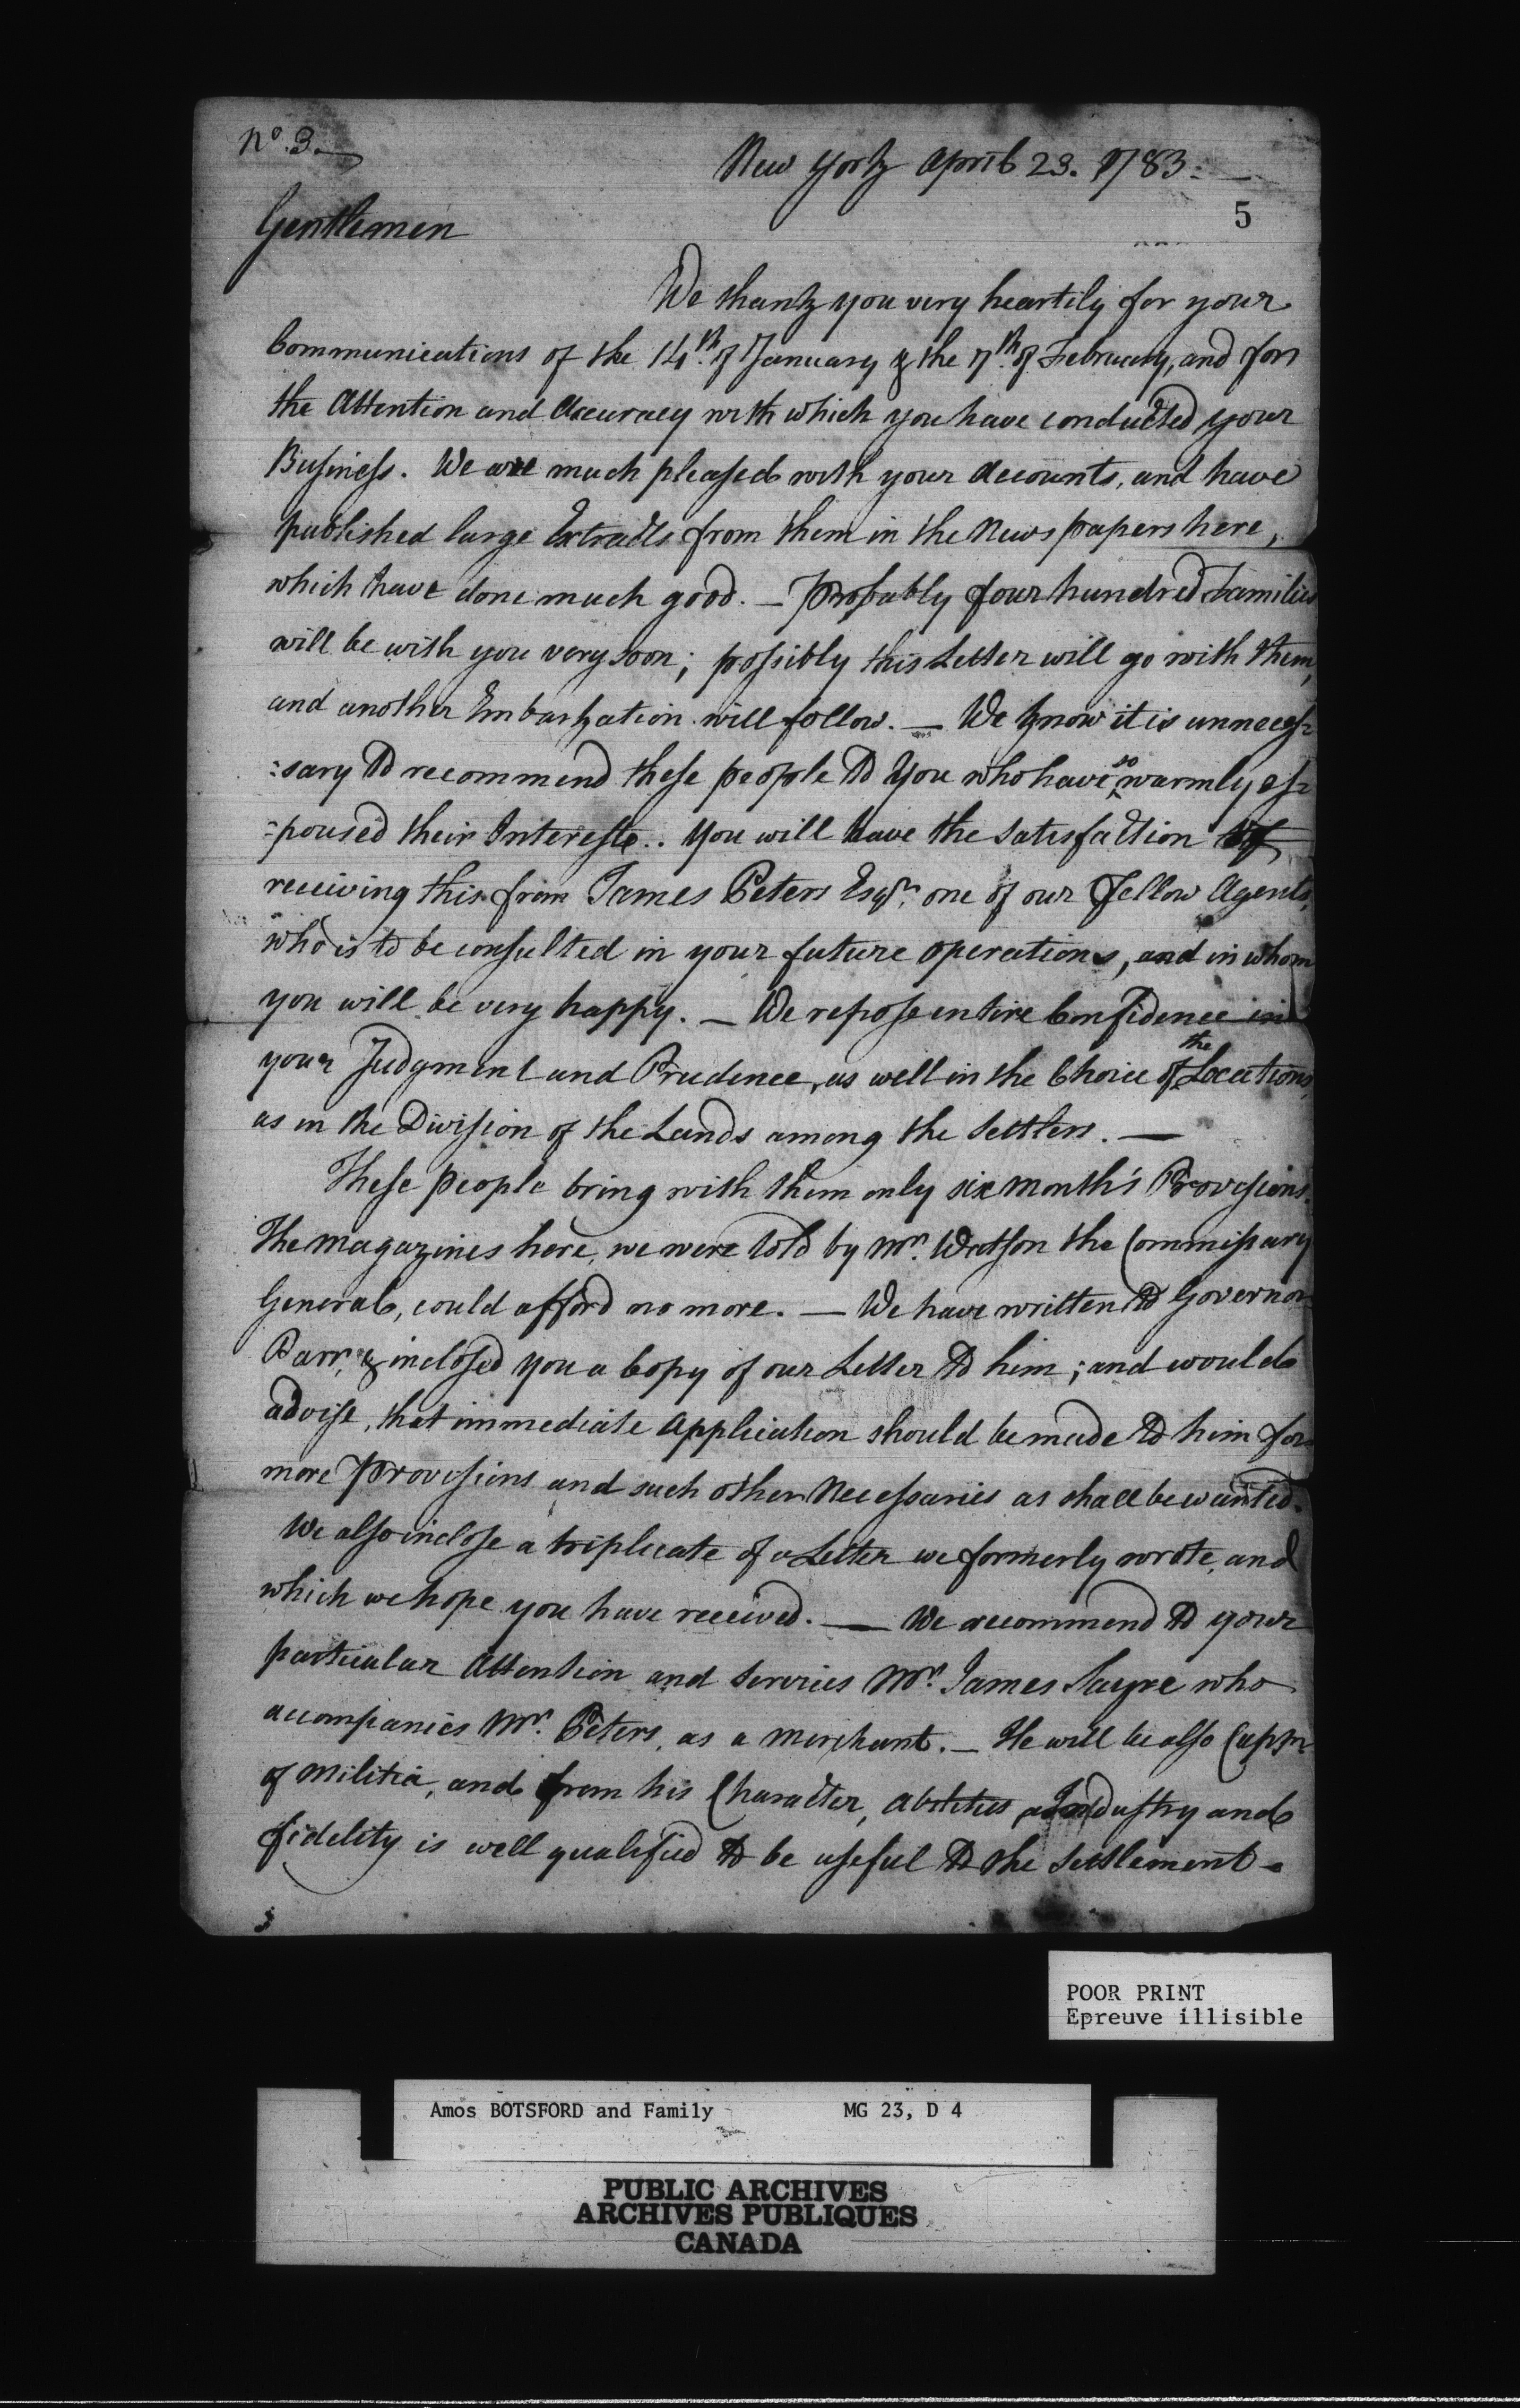 No. 3.
New York April 23. 1783.
5
Gentlemen
We thank you very heartily for your
Communications of the 14th. of January & the 7th. of February, and for
the Attention and Accuracy with which you have conducted your
Business. We are much pleased with your Accounts, and have
published large Extracts from them in the News papers here,
which have done much good. — Probably four hundred Families
will be with you very soon; possibly this Letter will go with them,
and another Embarkation will follow. — We know it is unneces=
=sary to recommend these people to You who have so warmly es=
=poused their Interests. You will have the Satisfaction of
receiving this from James Peters Esqr. one of our fellow Agents,
who is to be consulted in your future Operations, and in whom
you will be very happy. — We repose entire Confidence in
your Judgment and Prudence, as well in the Choice of the Locations,
as in the Division of the Lands among the Settlers. —
These people bring with them only six month's Provisions.
The Magazines here, we were told by Mr. Watson the Commissary
General, could afford no more. — We have written to Governor
Parr, & inclosed you a Copy of our Letter to him; and would
advise, that immediate Application should be made to him for
more Provisions and such other Necessaries as shall be wanted.
We also inclose a triplicate of a Letter we formerly wrote, and
which we hope you have received. — We recommend to your
particular Attention and Services Mr. James Sayre who
accompanies Mr. Peters, as a Merchant. — He will be also Captn
of Militia, and from his Character, Abilities, Industry and
fidelity is well qualified to be useful to the Settlement.
POOR PRINT
Epreuve illisible
Amos BOTSFORD and Family MG 23, D 4
PUBLIC ARCHIVES
ARCHIVES PUBLIQUES
CANADA